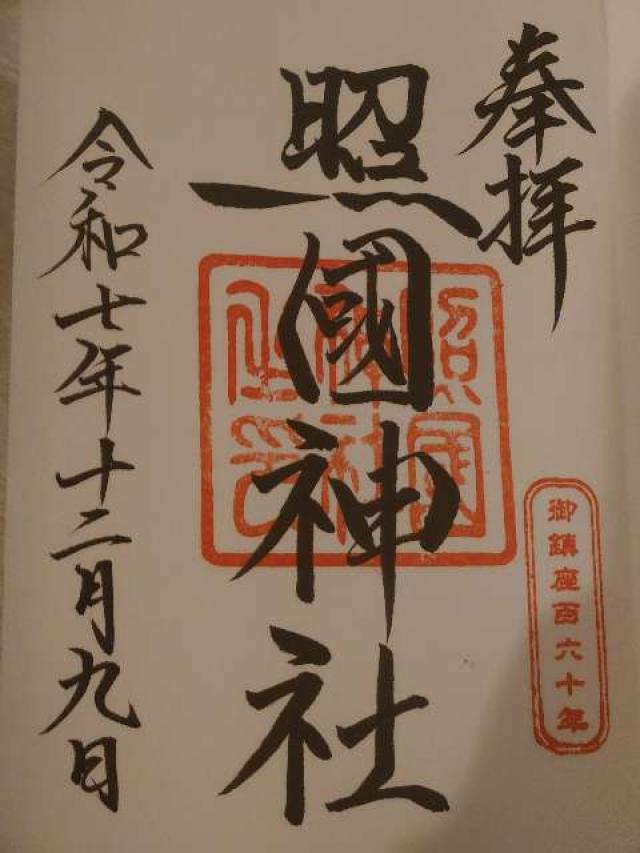 奉拝
照國神社
令和七年十二月九日
照國
神社
之印
御鎮座百六十年